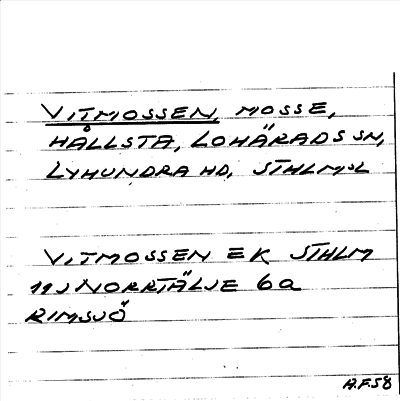 VITMOSSEN, MOSSE,
HÅLLSTA, LOHÄRADS SN,
LYHUNDRA HD, STHLMSL
VITMOSSEN EK STHLM
11J NORRTÄLJE 6a
RIMSJÖ
A.F.58